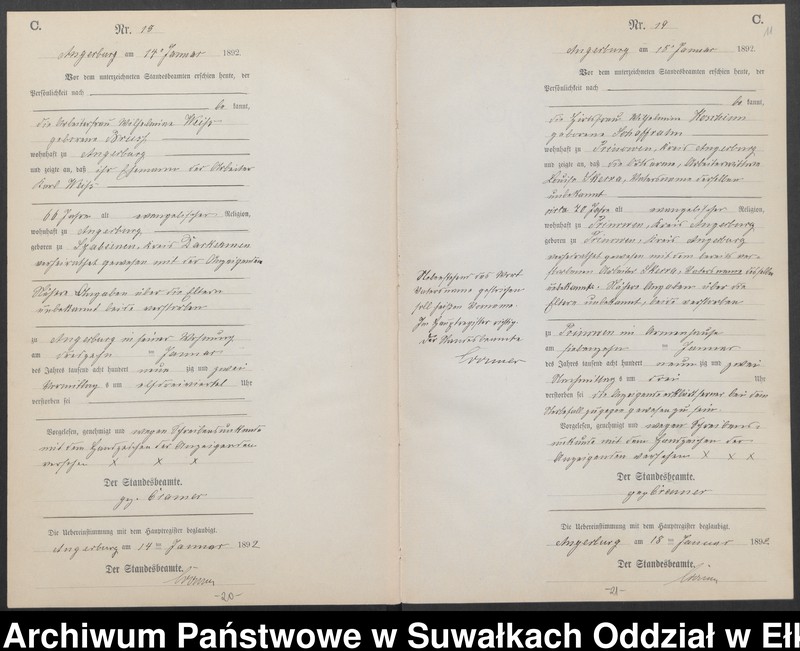 C.
Nr. 13
Angerburg am 14t Januar 1892.
Vor dem unterzeichneten Standesbeamten erschien heute, der
Persönlichkeit nach
be kannt,
die Arbeiterfrau Wilhelmine Weiß
geborene
wohnhaft zu Angerburg
und zeigte an, daß ihr Ehemann der Arbeiter
Karl Weiß
66 Jahre alt evangelischer Religion,
wohnhaft zu Angerburg
geboren zu Szabienen, Kreis Darkehmen
verheirathet gewesen mit der Anzeigenden
Nähere Angaben über die Eltern
unbekannt beide verstorben
zu Angerburg in seiner Wohnung
am dreizehn ten Januar
des Jahres tausend acht hundert neun zig und zwei
Vormittag s um elfdreiviertel Uhr
verstorben sei
Vorgelesen, genehmigt und wegen Schreibensunkunde
mit dem Handzeichen der Anzeigenden
versehen x x x
Der Standesbeamte.
gez. Cramer
Die Uebereinstimmung mit dem Hauptregister beglaubigt.
Angerburg am 14 ten Januar 1892
Der Standesbeamte.
-20-
C.
Nr. 14
11
Angerburg am 18t Januar 1892.
Vor dem unterzeichneten Standesbeamten erschien heute, der
Persönlichkeit nach
be kannt,
die Hirtfrau Wilhelmine
geborene
wohnhaft zu Prinowen, Kreis Angerburg
und zeigte an, daß die Ortsarme, Arbeiterwittwe
Louise Skerra, Vatersname derselben
unbekannt
circa 70 Jahre alt evangelischer Religion,
wohnhaft zu Prinowen, Kreis Angerburg
geboren zu Prinowen, Kreis Angerburg
verheirathet gewesen mit dem bereits ver-
storbenen Arbeiter Skerra, Vatersname desselben
unbekannt. Nähere Angaben über die
Eltern unbekannt, beide verstorben
Nebenstehend das Wort
Vatersname gestrichen
soll heißen Vorname.
Im Hauptregister richtig.
Der Standesbeamte
zu Prinowen im Armenhause
am siebenzehn ten Januar
des Jahres tausend acht hundert neun zig und zwei
Nachmittag s um drei Uhr
verstorben sei die Anzeigende erklärt ferner bei dem
Sterbefall zugegen gewesen zu sein.
Vorgelesen, genehmigt und wegen Schreibens-
unkunde mit dem Handzeichen der
Anzeigenden versehen x x x
Der Standesbeamte.
gez
Die Uebereinstimmung mit dem Hauptregister beglaubigt.
Angerburg am 18 ten Januar 1892.
Der Standesbeamte.
-21-
Archiwum Państwowe w Suwałkach Oddział w Ełk